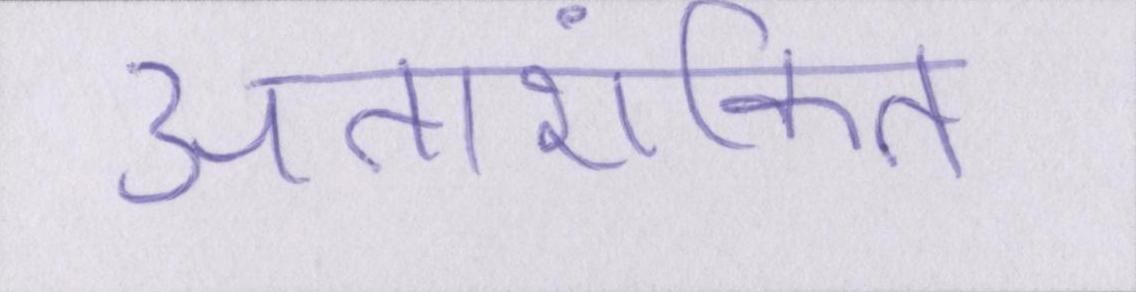 अताशंकित